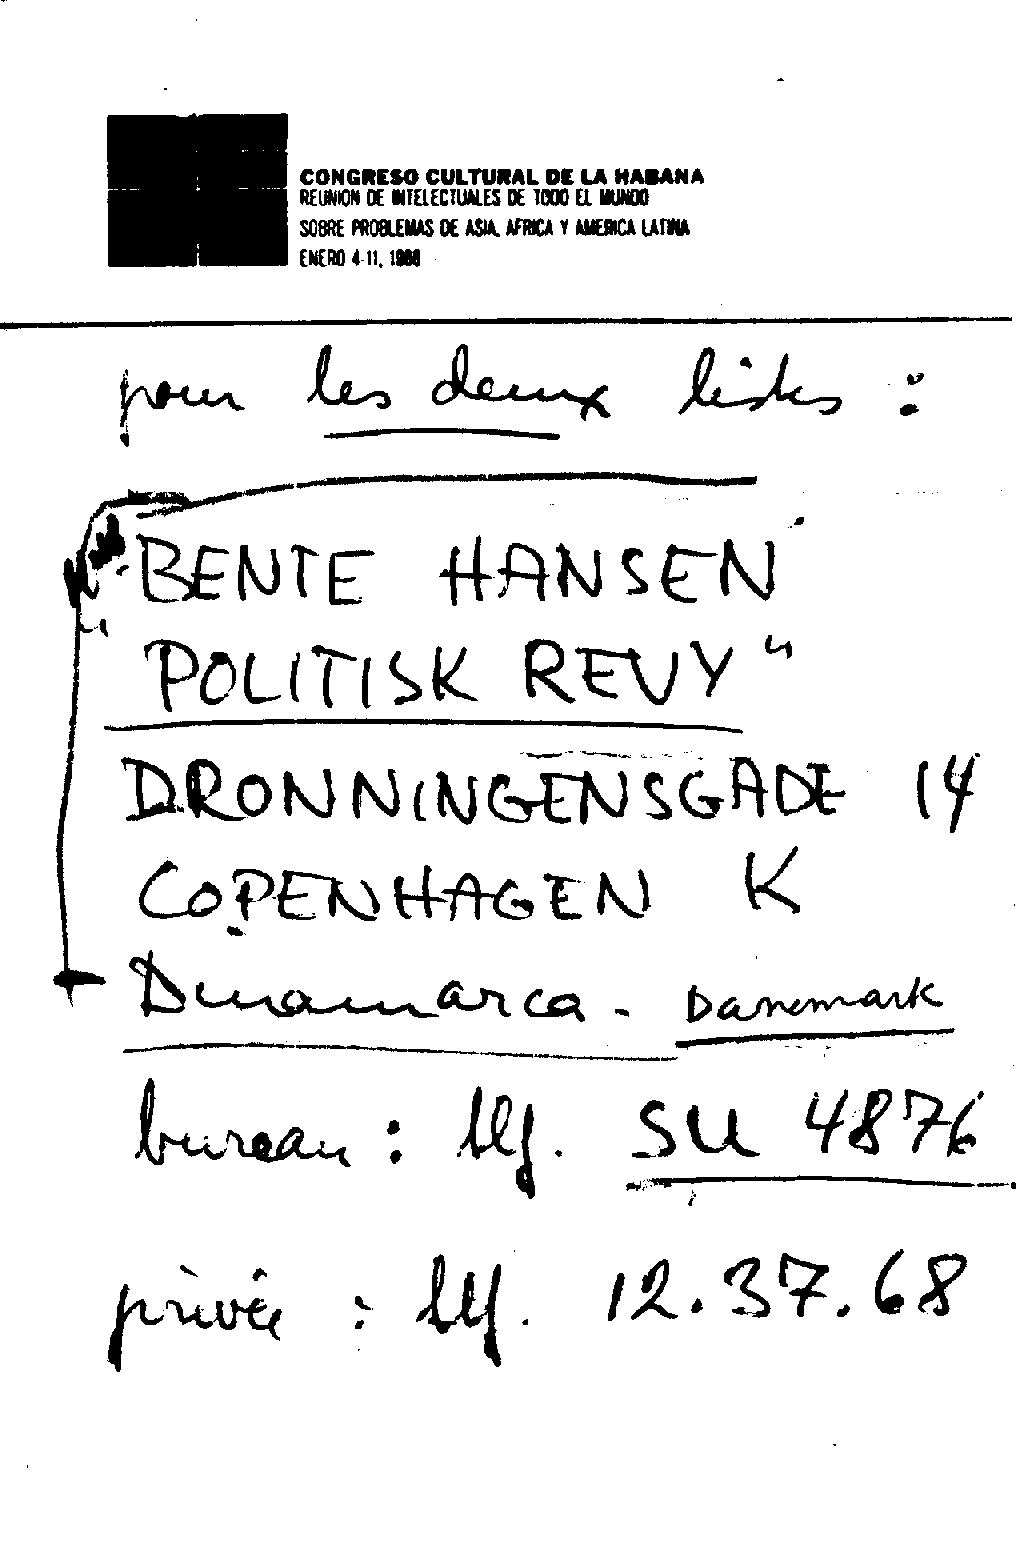 CONGRESO CULTURAL DE LA HABANA
REUNION DE INTELECTUALES DE TODO EL MUNDO
SOBRE PROBLEMAS DE ASIA, AFRICA Y AMERICA LATINA
ENERO 4-11, 1968
pour les deux listes :
BENTE HANSEN
"POLITISK REVY"
DRONNINGENSGADE 14
COPENHAGEN K
Dinamarca - Danemark
bureau : tlf. SU 4876
privée : tlf. 12.37.68